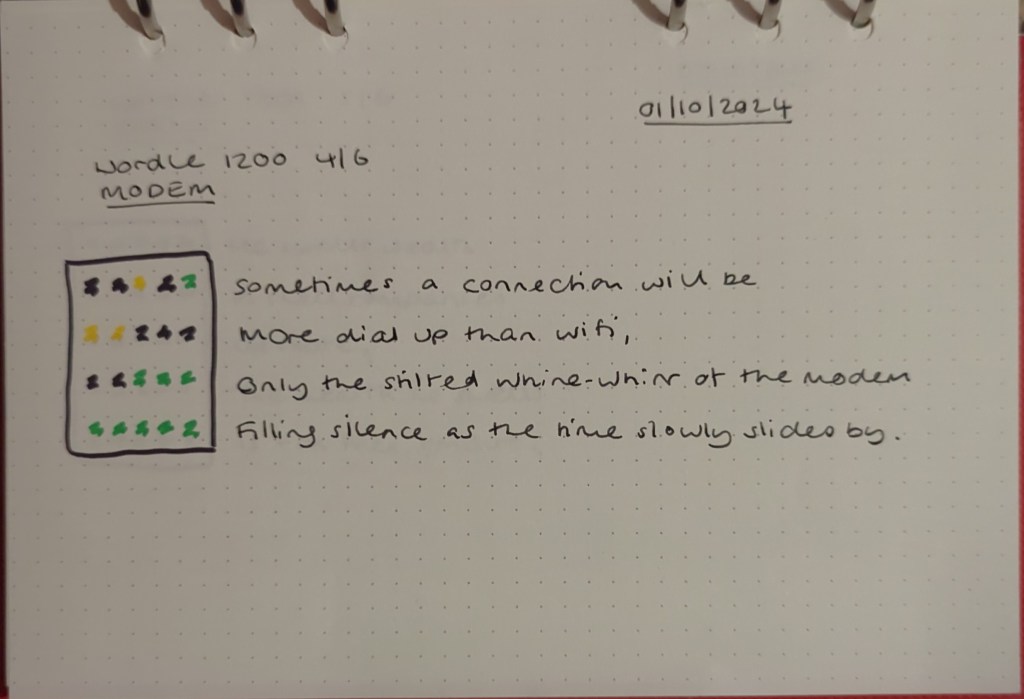 01/10/2024
Wordle 1200 4/6
MODEM
Sometimes a connection will be
More dial up than wifi,
Only the stilted whine-whirr of the modem
Filling silence as the time slowly slides by.